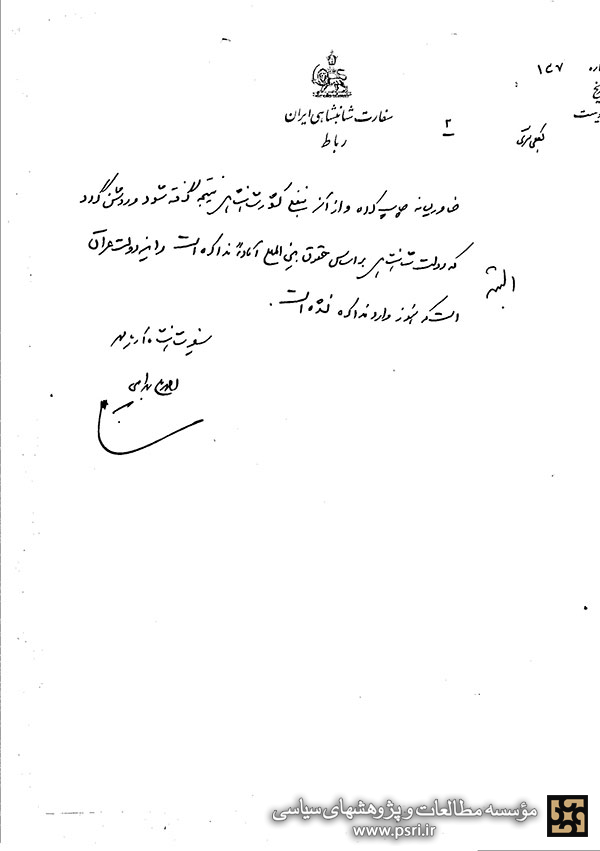 اره ۱۴۷
یخ
وست
سفارت شاهنشاهی ایران
رباط
۲
بکلی سری
خاورمیانه چاپ کرده و از آن بنفع کشور شاهنشاهی نتیجه گرفته شود و روشن گردد
که دولت شاهنشاهی براساس حقوق بین المللی آماده مذاکره است و این دولت عراق
است که هنوز وارد مذاکره نشده است.
سفیر شاهنشاه آریامهر
مؤسسه مطالعات و پژوهشهای سیاسی
www.psri.ir